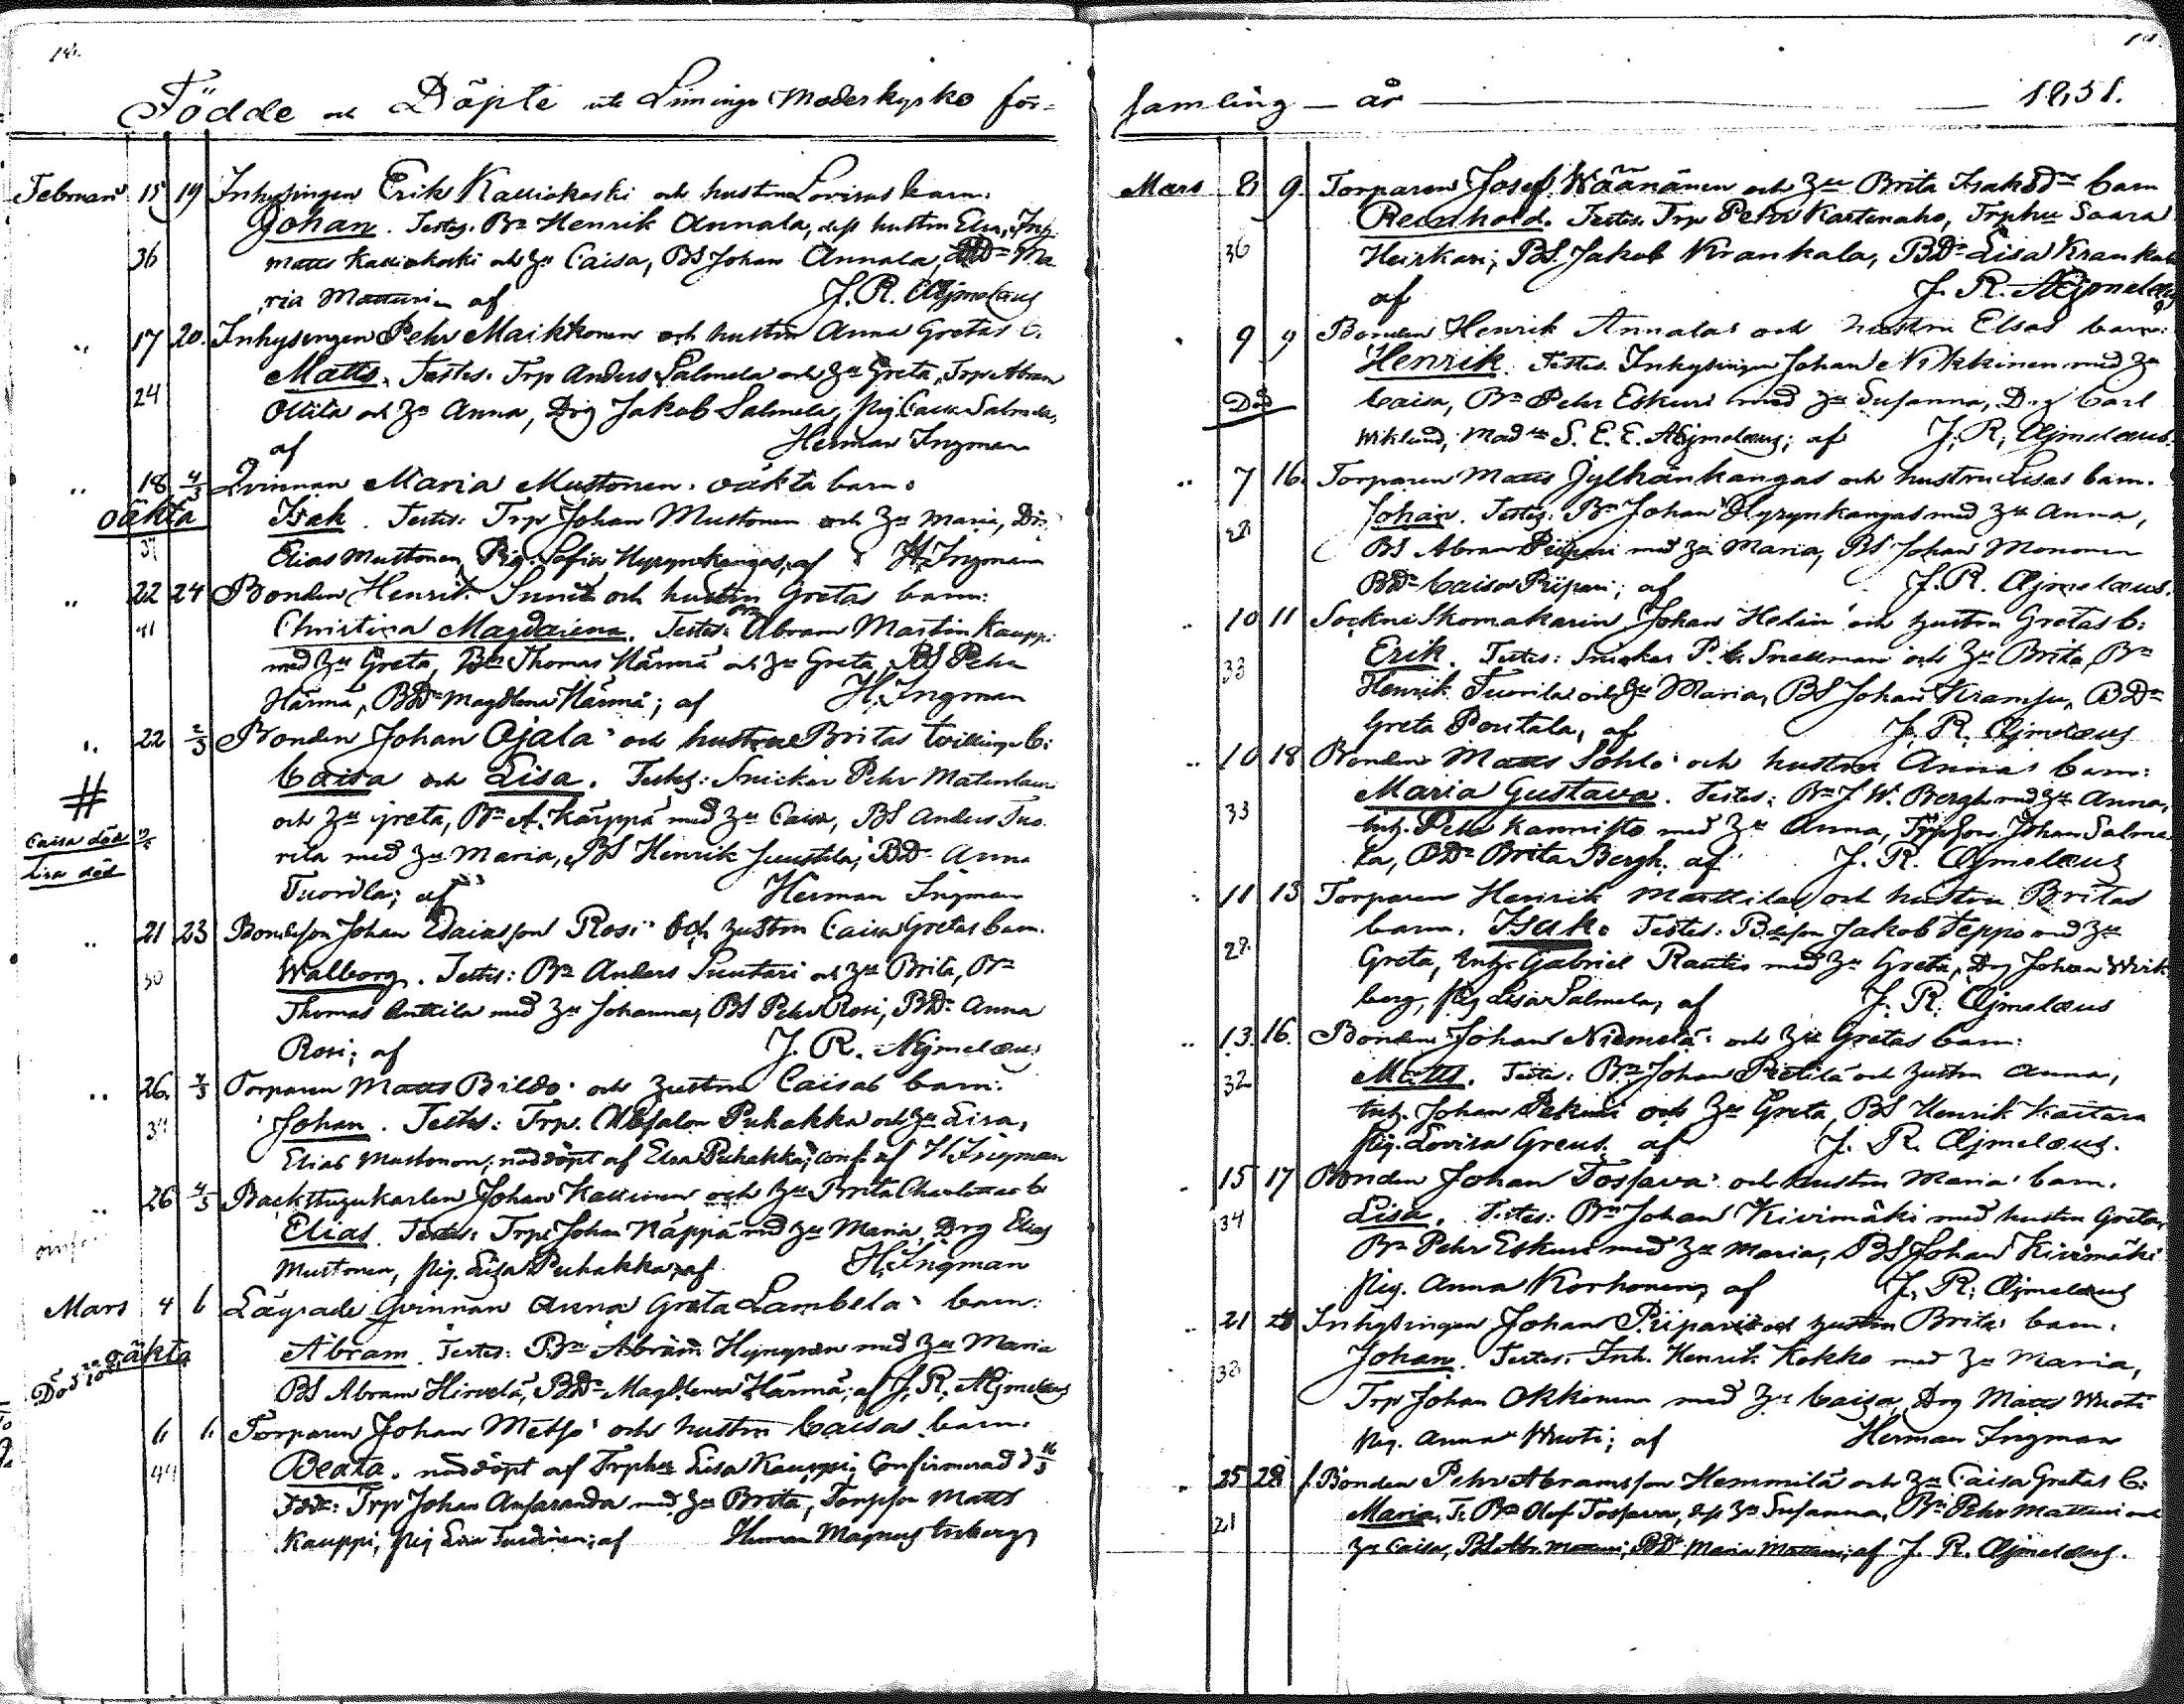 Födde och Döpte uti Limingo Moderkyrko för-
Februari 15 19 Inhysingen Erik Kalliokoski och hustru Lovisas barn:
Johan. Testes. Bn Henrik Annala, dess hustru Elsa, Inh.
36 Matts Kalliokoski och Hu Caisa, BS Johan Annala, BDr Ma
ria Matturi af J. R. Æjmelæus
" 17 20. Inhysingen Pehr Maikkonen och hustru Anna Gretas b.
Matts. Testes. Trp Anders Salmela och Hu Greta, Trp Abram
24 Ollila och Hu Anna, Drg Jakob Salmela, Pig. Caisa Salmela,
af Herman Ingman
" 18 4/3 Qvinnan Maria Mustonen. oäkta barn.
oäkta Isak. Testes: Trp Johan Mustonen och Hu Maria, Dr.
37 Elias Mustonen, Pig. Sofia Hyrynkangas, af H. Ingman
" 22 24 Bonden Henrik och hustru Gretas barn:
41 Christina Magdalena. Testes: Abram Martin Kauppi
med Hu Greta, Bn Thomas Härmä och Hu Greta, BS Pehr
Härmä, BDr Magdlena Härmä; af H. Ingman
" 22 2/3 Bonden Johan Ojala och hustru Britas tvillinge b:
# Caisa och Lisa. Testes: Snickar Pehr Matinlauri
och Hu Greta, Bn A. Kärppä med Hu Caisa, BS Anders Tuo
Caisa död rila med Hu Maria, BS Henrik Juustila, BDr Anna
Lisa död
Tuorila; af Herman Ingman
" 21 23 Bondeson Johan Rosi och hustru Caisa Gretas barn.
30 Walborg. Testes: Bn Anders Suutari och Hu Brita, Bn
Thomas Anttila med Hu Johanna, BS Pehr Rosi, BDr Anna
Rosi; af J. R. Æjmelæus
" 26. 4/3 Torparen Matts Bildo och hustru Caisas barn:
Johan. Testes: Trp. Abfalon Puhakka och Hu Lisa,
Elias Mustonen; nöddöpt af Elsa Puhakka; conf. af H. Ingman
" 26 4/3 Backstugukarlen Johan Kallinen och Hu Brita b
Elias. Testes: Trp Johan Näppä med Hu Maria, Drg Elias
Mustonen, Pig. Lisa Puhakka, af H. Ingman
Mars 4 6 Lägrade Qvinnan Anna Greta Lambela barn:
oäkta Abram. Testes: Bn Abram Hyngynen med Hu Maria
Död BS Abram Hirvelä, BDr Magdlena Härmä; af J. R. Æjmelæus
6 6. Torparen Johan Metso och hustru Caisas barn.
44 Beata. nöddöpt af Trphu Lisa Kauppi; Confirmerad d
Test: Trp Johan Ansaranda med Hu Brita, Torpson Matts
Kauppi, Pig Herman Magnus
samling — år — 1851.
Mars 8 9. Torparen Josef Väänänen och Hu Brita Isaksdr barn
Reinhold. Testes. Trp Pehr Kastenaho, Trphu Saara
36 Heikkari, BS. Jakob Krankala, BDr Lisa Krankala
af J. R. Æjmelæus
9 9 Bonden Henrik Annalas och hustru Elsas barn:
Henrik. Testes. Inhysingen Johan Nikkinen med Hu
Död Caisa, Bn Pehr Eskuri med Hu Susanna, Drg Carl
Wiklund, S. E. E. Æjmelæus; af J. R. Æjmelæus.
" 7 16. Torparen Matts Jylhänkangas och hustru Lisas barn.
Johan. Testes: Bn Johan Hyrynkangas med Hu Anna,
BS Abram Piipari med Hu Maria, BS Johan Mononen
BDr Caisa Piipari; af J. R. Æjmelæus.
" 10 11 Sockne Skomakarin Johan Helin och hustru Gretas b:
33 Erik. Testes: Snickar P. Snellman och Hu Brita, Bn
Henrik Tuorila och Hu Maria, BS Johan Kramsu, BDr
Greta Pontala, af J. R. Æjmelæus
" 10 18 Bonden Matts Sohlo och hustru Annas barn:
33 Maria Gustava. Testes: Bn J. W. Bergh med Hu Anna,
Inh. Pehr Kannisto med Hu Anna, Torpson Johan Salme
la, BDr Brita Bergh. af J. R. Æjmelæus
" 11 13 Torparen Henrik Marttila och hustru Britas
barn. Isak. Testes: Jakob Seppo med Hu
28 Greta, Inh. Gabriel Rautio med Hu Greta, Drg Johan
berg, Pig Lisa Salmela, af J. R. Æjmelæus
" 13. 16. Bonden Johan Niemelä och Hu Gretas barn:
32 Matts. Testes: Bn Johan Pietilä och hustru Anna,
Inh. Johan Pekuri och Hu Greta, BS Henrik Kaitara
Pig. Lovisa Greus. af J. R. Æjmelæus.
15 17 Bonden Johan Tossava och hustru Maria barn.
34 Lisa. Testes: Bn Johan Kivimäki med hustru Greta,
Bn Pehr Eskuri med Hu Maria, BS Johan Kivimäki
Pig. Anna Korhonen, af J. R. Æjmelæus
" 21 Inhysingen Johan Piipari och hustru Britas barn.
Johan. Testes: Inh. Henrik Kokko med Hu Maria,
Trp Johan Okkonen med Hu Caisa, Drg Matts Wuoti
Pig. Anna Wuoti; af Herman Ingman
" 25 28 Bonden Pehr Abramsson Hemmilä och Hu Caisa Gretas b:
21 Maria. T: Bn Olof Tossava, dess Hu Susanna, Bn Pehr Matturi och
Hu Caisa, BS Abr. Matturi, BDr Maria Matturi; af J. R. Æjmelæus.